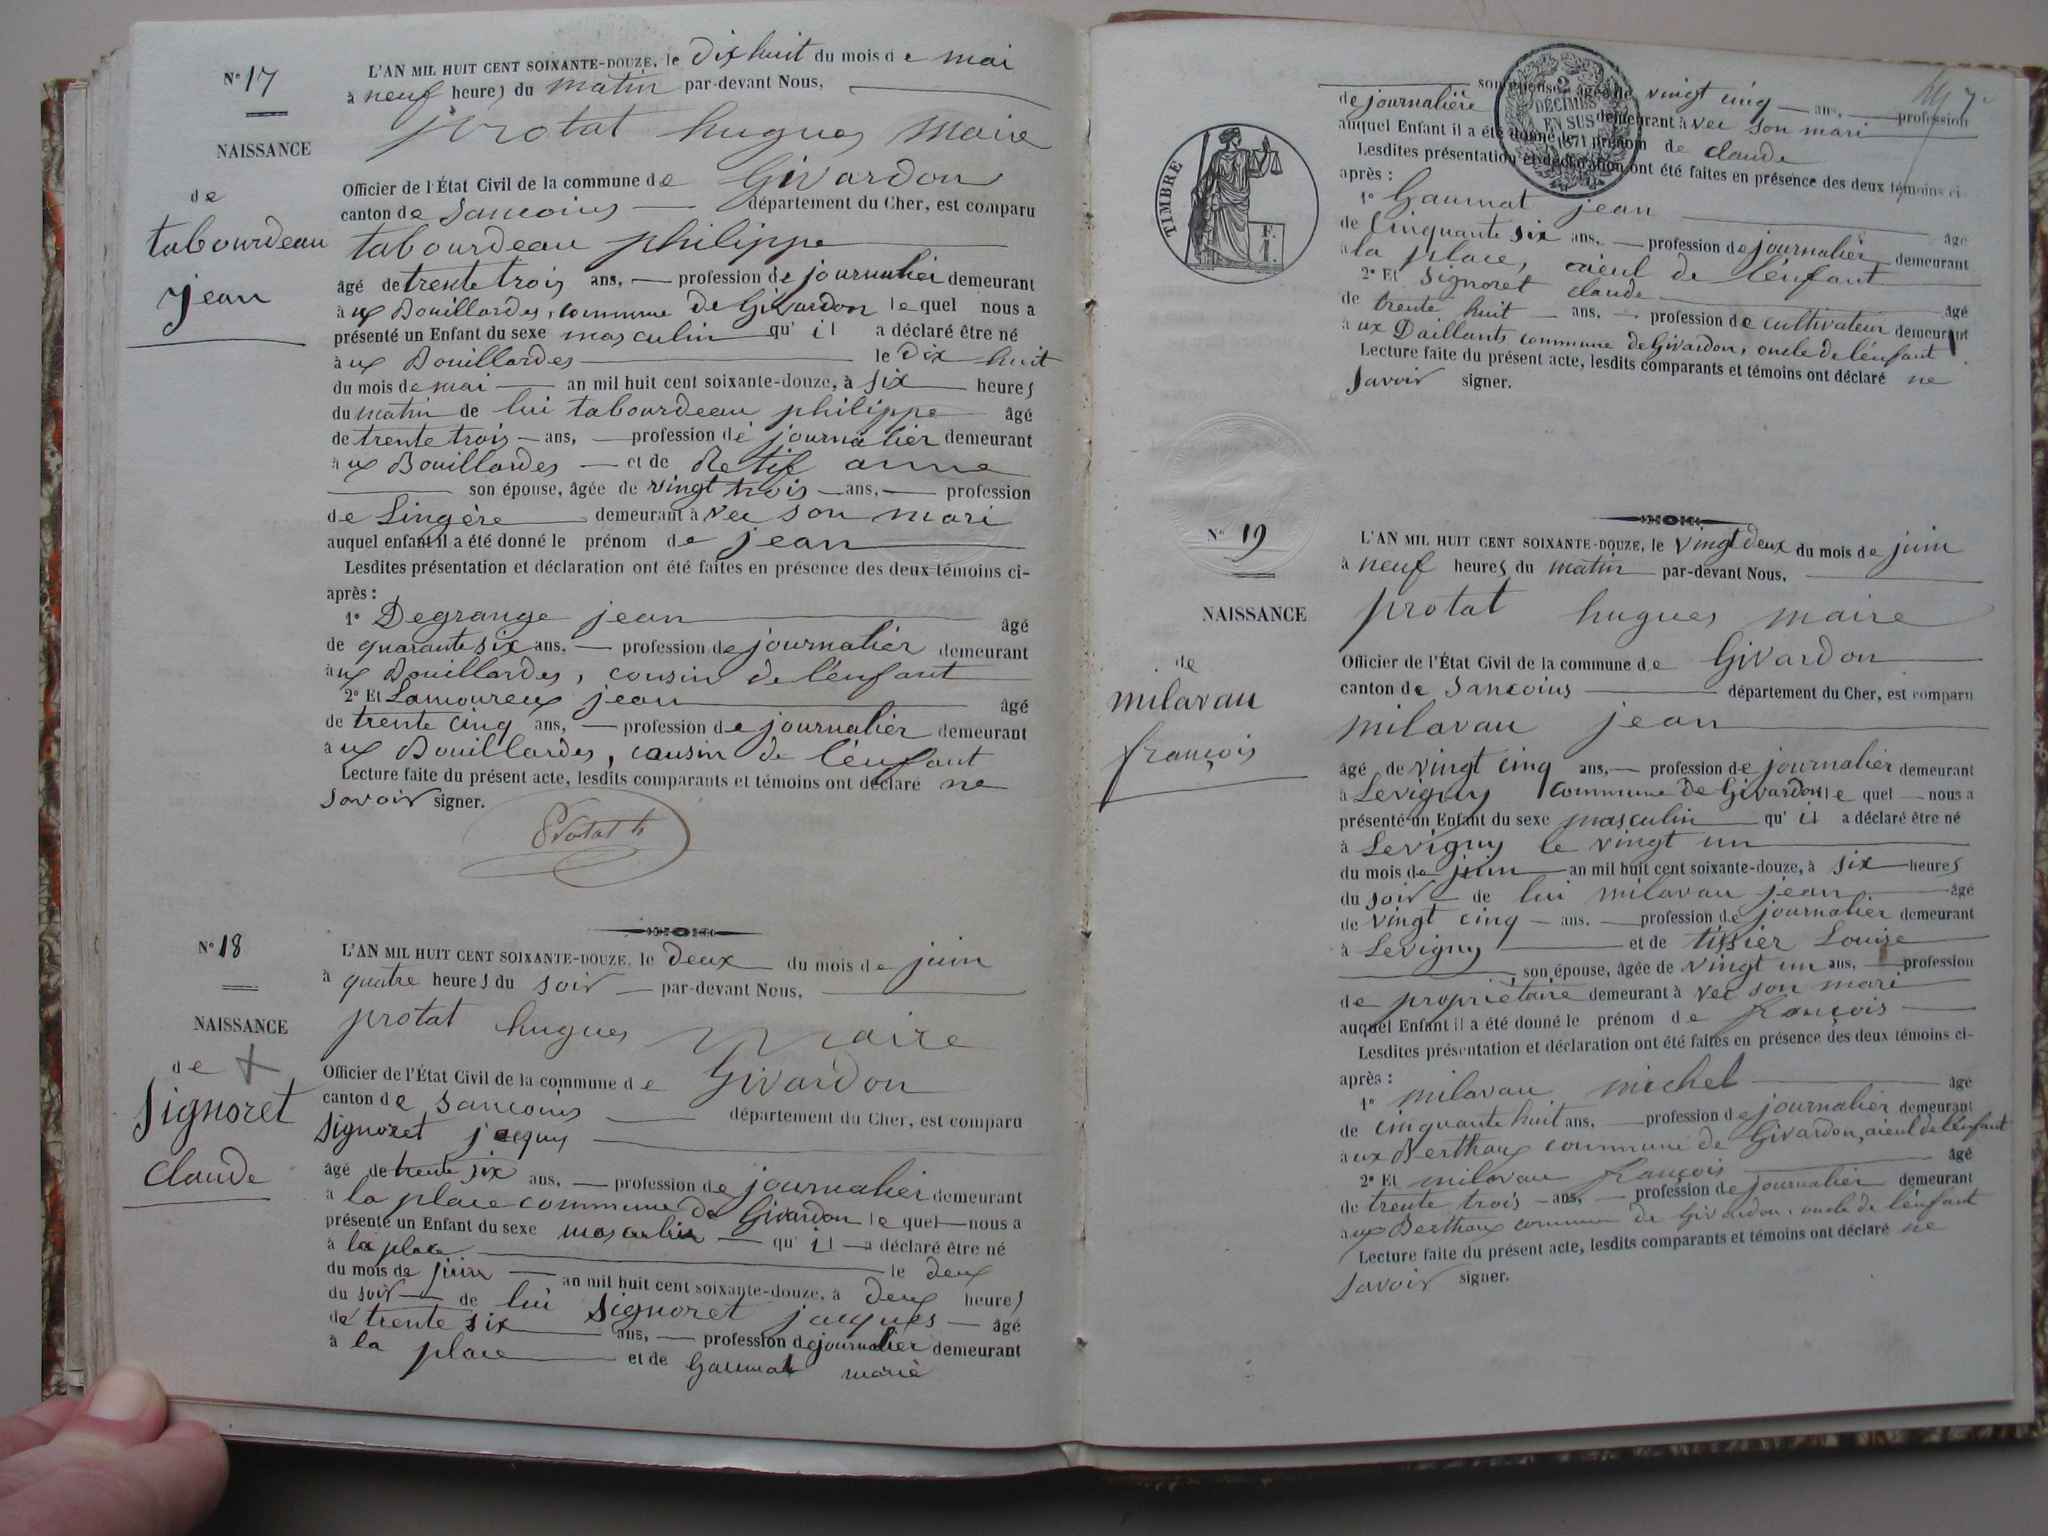 N° 17
NAISSANCE
de
tabourdeau
jean
L'AN MIL HUIT CENT SOIXANTE-DOUZE, le dix huit du mois de mai
à neuf heures du matin par-devant Nous,
protat hugues Maire
Officier de l'État Civil de la commune de Givardon
canton de Sancoins département du Cher, est comparu
tabourdeau philippe
âgé de trente trois ans, profession de journalier demeurant
à ux Bouillardes, commune de Givardon lequel nous a
présenté un Enfant du sexe masculin qu'il a déclaré être né
à ux Bouillardes le dix huit
du mois de mai an mil huit cent soixante-douze, à six heures
du matin de lui tabourdeau philippe âgé
de trente trois ans, profession de journalier demeurant
à ux Bouillardes et de Retif anne
son épouse, âgée de vingt trois ans, profession
de Lingère demeurant à vec son mari
auquel enfant il a été donné le prénom de jean
Lesdites présentation et déclaration ont été faites en présence des deux témoins ci-
après :
1° Degrange jean âgé
de quarante six ans, profession de journalier demeurant
à ux Bouillardes, cousin de l'enfant
2° Et Lamoureux jean âgé
de trente cinq ans, profession de journalier demeurant
à ux Bouillardes, cousin de l'énfant
Lecture faite du présent acte, lesdits comparants et témoins ont déclaré ne
savoir signer.
Protat h
N° 18
NAISSANCE
de
Signoret
claude
L'AN MIL HUIT CENT SOIXANTE-DOUZE, le deux du mois de juin
à quatre heures du soir par-devant Nous,
protat hugues Maire
Officier de l'État Civil de la commune de Givardon
canton de Sancoins département du Cher, est comparu
Signoret jacques
âgé de trente six ans, profession de journalier demeurant
à la place commune de Givardon lequel nous a
présenté un Enfant du sexe masculin qu'il a déclaré être né
à la place le deux
du mois de juin an mil huit cent soixante-douze, à deux heures
du soir de lui Signoret jacques âgé
de trente six ans, profession de journalier demeurant
à la place et de Gaumat marie
son épouse âgée de vingt cinq ans, profession
de journalière demeurant à vec son mari
auquel Enfant il a été donné le prénom de claude
Lesdites présentation et déclaration ont été faites en présence des deux témoins ci-
après :
1° Gaumat jean âgé
de Cinquante six ans, profession de journalier demeurant
à la place, aïeul de l'énfant
2° Et Signoret claude âgé
de trente huit ans, profession de cultivateur demeurant
à ux Daillants commune de Givardon, oncle de l'énfant
Lecture faite du présent acte, lesdits comparants et témoins ont déclaré ne
savoir signer.
2
DÉCIMES
EN SUS
1871
TIMBRE
F.
1.
N° 19
NAISSANCE
de
milavau
françois
L'AN MIL HUIT CENT SOIXANTE-DOUZE, le vingt deux du mois de juin
à neuf heures du matin par-devant Nous,
protat hugues maire
Officier de l'État Civil de la commune de Givardon
canton de Sancoins département du Cher, est comparu
milavau jean
âgé de vingt cinq ans, profession de journalier demeurant
à Levigny commune de Givardon lequel nous a
présenté un Enfant du sexe masculin qu'il a déclaré être né
à Levigny le vingt un
du mois de juin an mil huit cent soixante-douze, à six heures
du soir de lui milavau jean âgé
de vingt cinq ans, profession de journalier demeurant
à Levigny et de tissier Louise
son épouse, âgée de vingt un ans, profession
de propriétaire demeurant à vec son mari
auquel Enfant il a été donné le prénom de françois
Lesdites présentation et déclaration ont été faites en présence des deux témoins ci-
après :
1° milavau michel âgé
de cinquante huit ans, profession de journalier demeurant
à ux Berthaux commune de Givardon, aïeul de l'énfant
2° Et milavau françois âgé
de trente trois ans, profession de journalier demeurant
à ux Berthaux commune de Givardon, oncle de l'énfant
Lecture faite du présent acte, lesdits comparants et témoins ont déclaré ne
savoir signer.